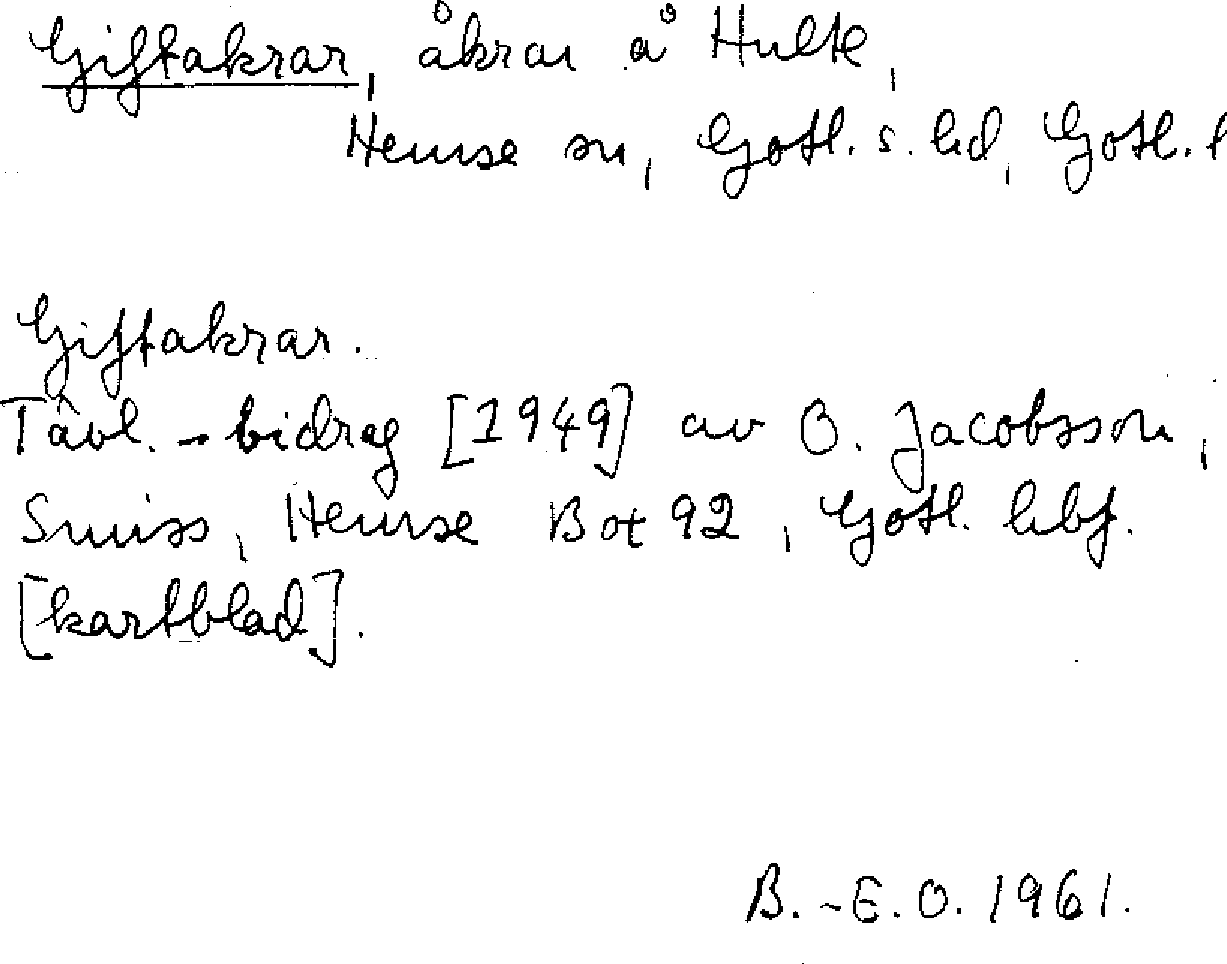 Giftakrar, åkrar å Hulte,
Hemse sn, Gotl. s. hd, Gotl. l
Giftakrar.
Tävl.-bidrag [1949] av O. Jacobsson,
Smiss, Hemse Box 92, Gotl. hbf.
[kartblad].
B.-E.O. 1961.